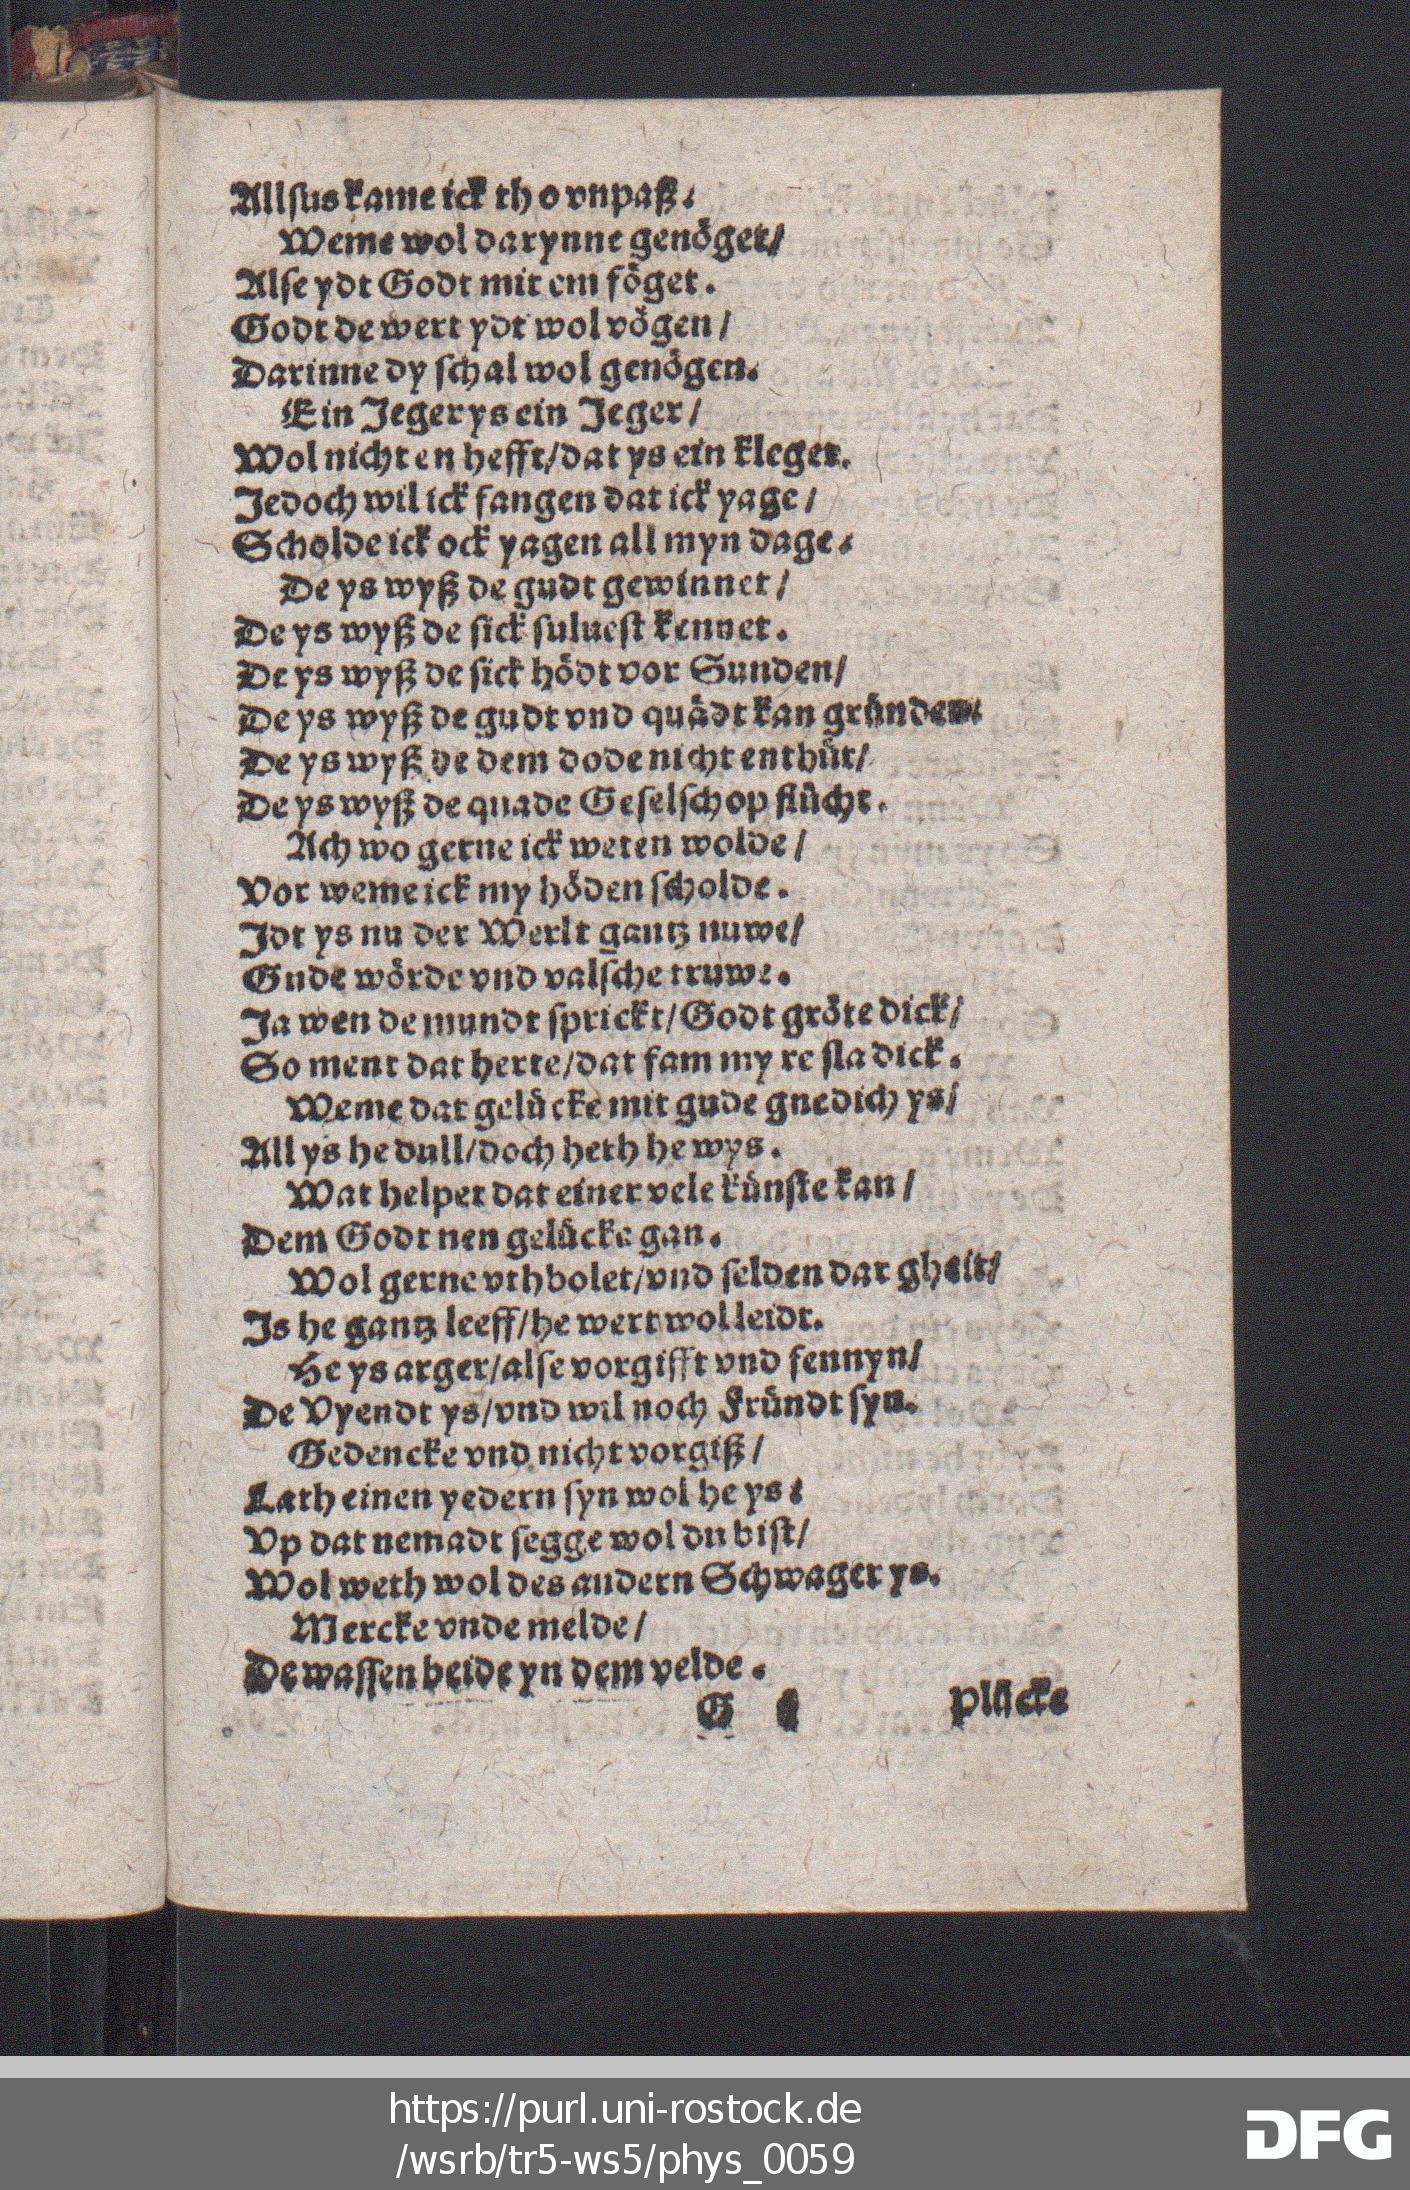 Allſus kame ick tho vnpaß.
Weme wol darynne genöget/
Alſe ydt Godt mit em föget.
Godt de wert ydt wol vögen/
Darinne dy ſchal wol genögen.
Ein Jeger ys ein Jeger/
Wol nicht en hefft/dat ys ein kleger.
Jedoch wil ick fangen dat ick yage/
Scholde ick ock yagen all myn dage.
De ys wyß de gudt gewinnet/
De ys wyß de ſick ſulueſt kennet.
De ys wyß de ſick hödt vor Sunden/
De ys wyß de gudt vnd quädt kan gründen.
De ys wyß de dem dode nicht enthüt/
De ys wyß de quade Geſelſchop flücht.
Ach wo gerne ick weten wolde/
Vor weme ick my höden ſcholde.
Jdt ys nu der Werlt gantz nuwe/
Gude wörde vnd valſche truwe.
Ja wen de mundt ſprickt/Godt gröte dick/
So ment dat herte/dat fam my re ſla dick.
Weme dat gelücke mit gude gnedich ys/
All ys he dull/doch heth he wys.
Wat helpet dat einer vele künſte kan/
Dem Godt nen gelücke gan.
Wol gerne vthbolet/vnd ſelden dar gheit/
Js he gantz leeff/he wert wol leidt.
He ys arger/alſe vorgifft vnd fennyn/
De Vyendt ys/vnd wil noch Fründt ſyn.
Gedencke vnd nicht vorgiß/
Lath einen yedern ſyn wol he ys:
Vp dat nemadt ſegge wol du biſt/
Wol weth wol des andern Schwager ys.
Mercke vnde melde/
De waſſen beide yn dem velde.
G Plücke
https://purl.uni-rostock.de
/wsrb/tr5-ws5/phys_0059
DFG